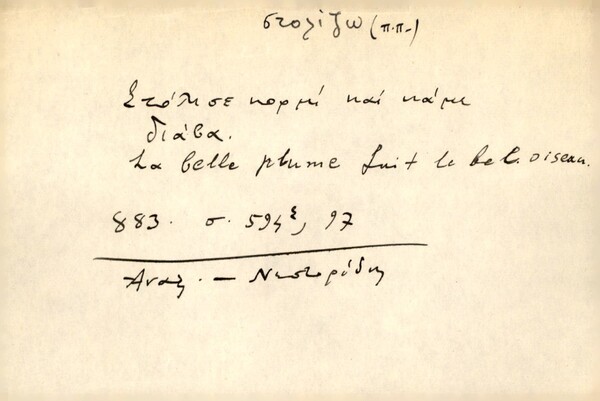 στολίζω (π.π.)
Στόλισε κορμί και κάμε
διάβα.
La belle plume fait le bel oiseau.
883. σ. 594ξ, 97
Αναγ. — Νεστορίδη